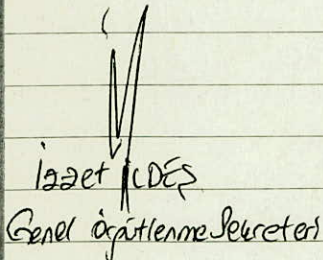 İzzet İLDEŞ
Genel örgütlenme Sekreteri